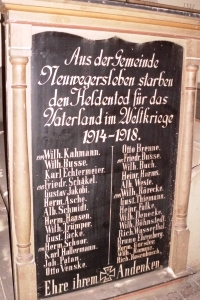 Aus der Gemeinde
Neuwegersleben starben
den Heldentod für das
Vaterland im Weltkriege
1914-1918.
Wilh. Kahmann.
Wilh. Busse.
Karl Echtermeier.
Friedr. Schökel.
Gustav Jakobi.
Herm. Asche.
Alb. Schmidt.
Herm. Hansen.
Wilh. Trümper.
Gust.
Herm. Schöne.
Karl Habermann.
Joh. Patan.
Otto Venske.
Otto Brenne.
Friedr. Busse.
Wilh. Buch.
Heinr. Horns.
Alb. Weste.
Wilh.
Gust. Thiemann.
Heinr. Falke.
Wilh. Jenecke.
Wilh. Bühnstedt.
Rich. Wasserthal.
Bruno
Herm.
Rich.
Ehre ihrem Andenken.